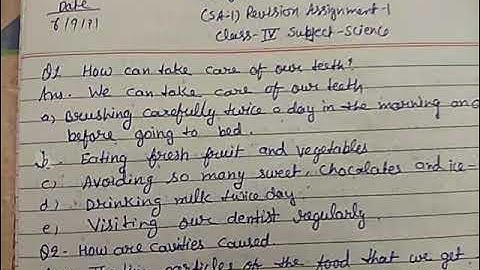 Date
6/9/21
(SA-1) Revision Assignment-1
Class-IV Subject-Science
Q1 How can take care of our teeth?
Ans. We can take care of our teeth
a) Brushing carefully twice a day in the morning and
before going to bed.
b- Eating fresh fruit and vegetables
c) Avoiding so many sweet, chocalates and ice-
d) Drinking milk twice day
e) Visiting our dentist regularly.
Q2- How are cavities caused
particles of the food that we get